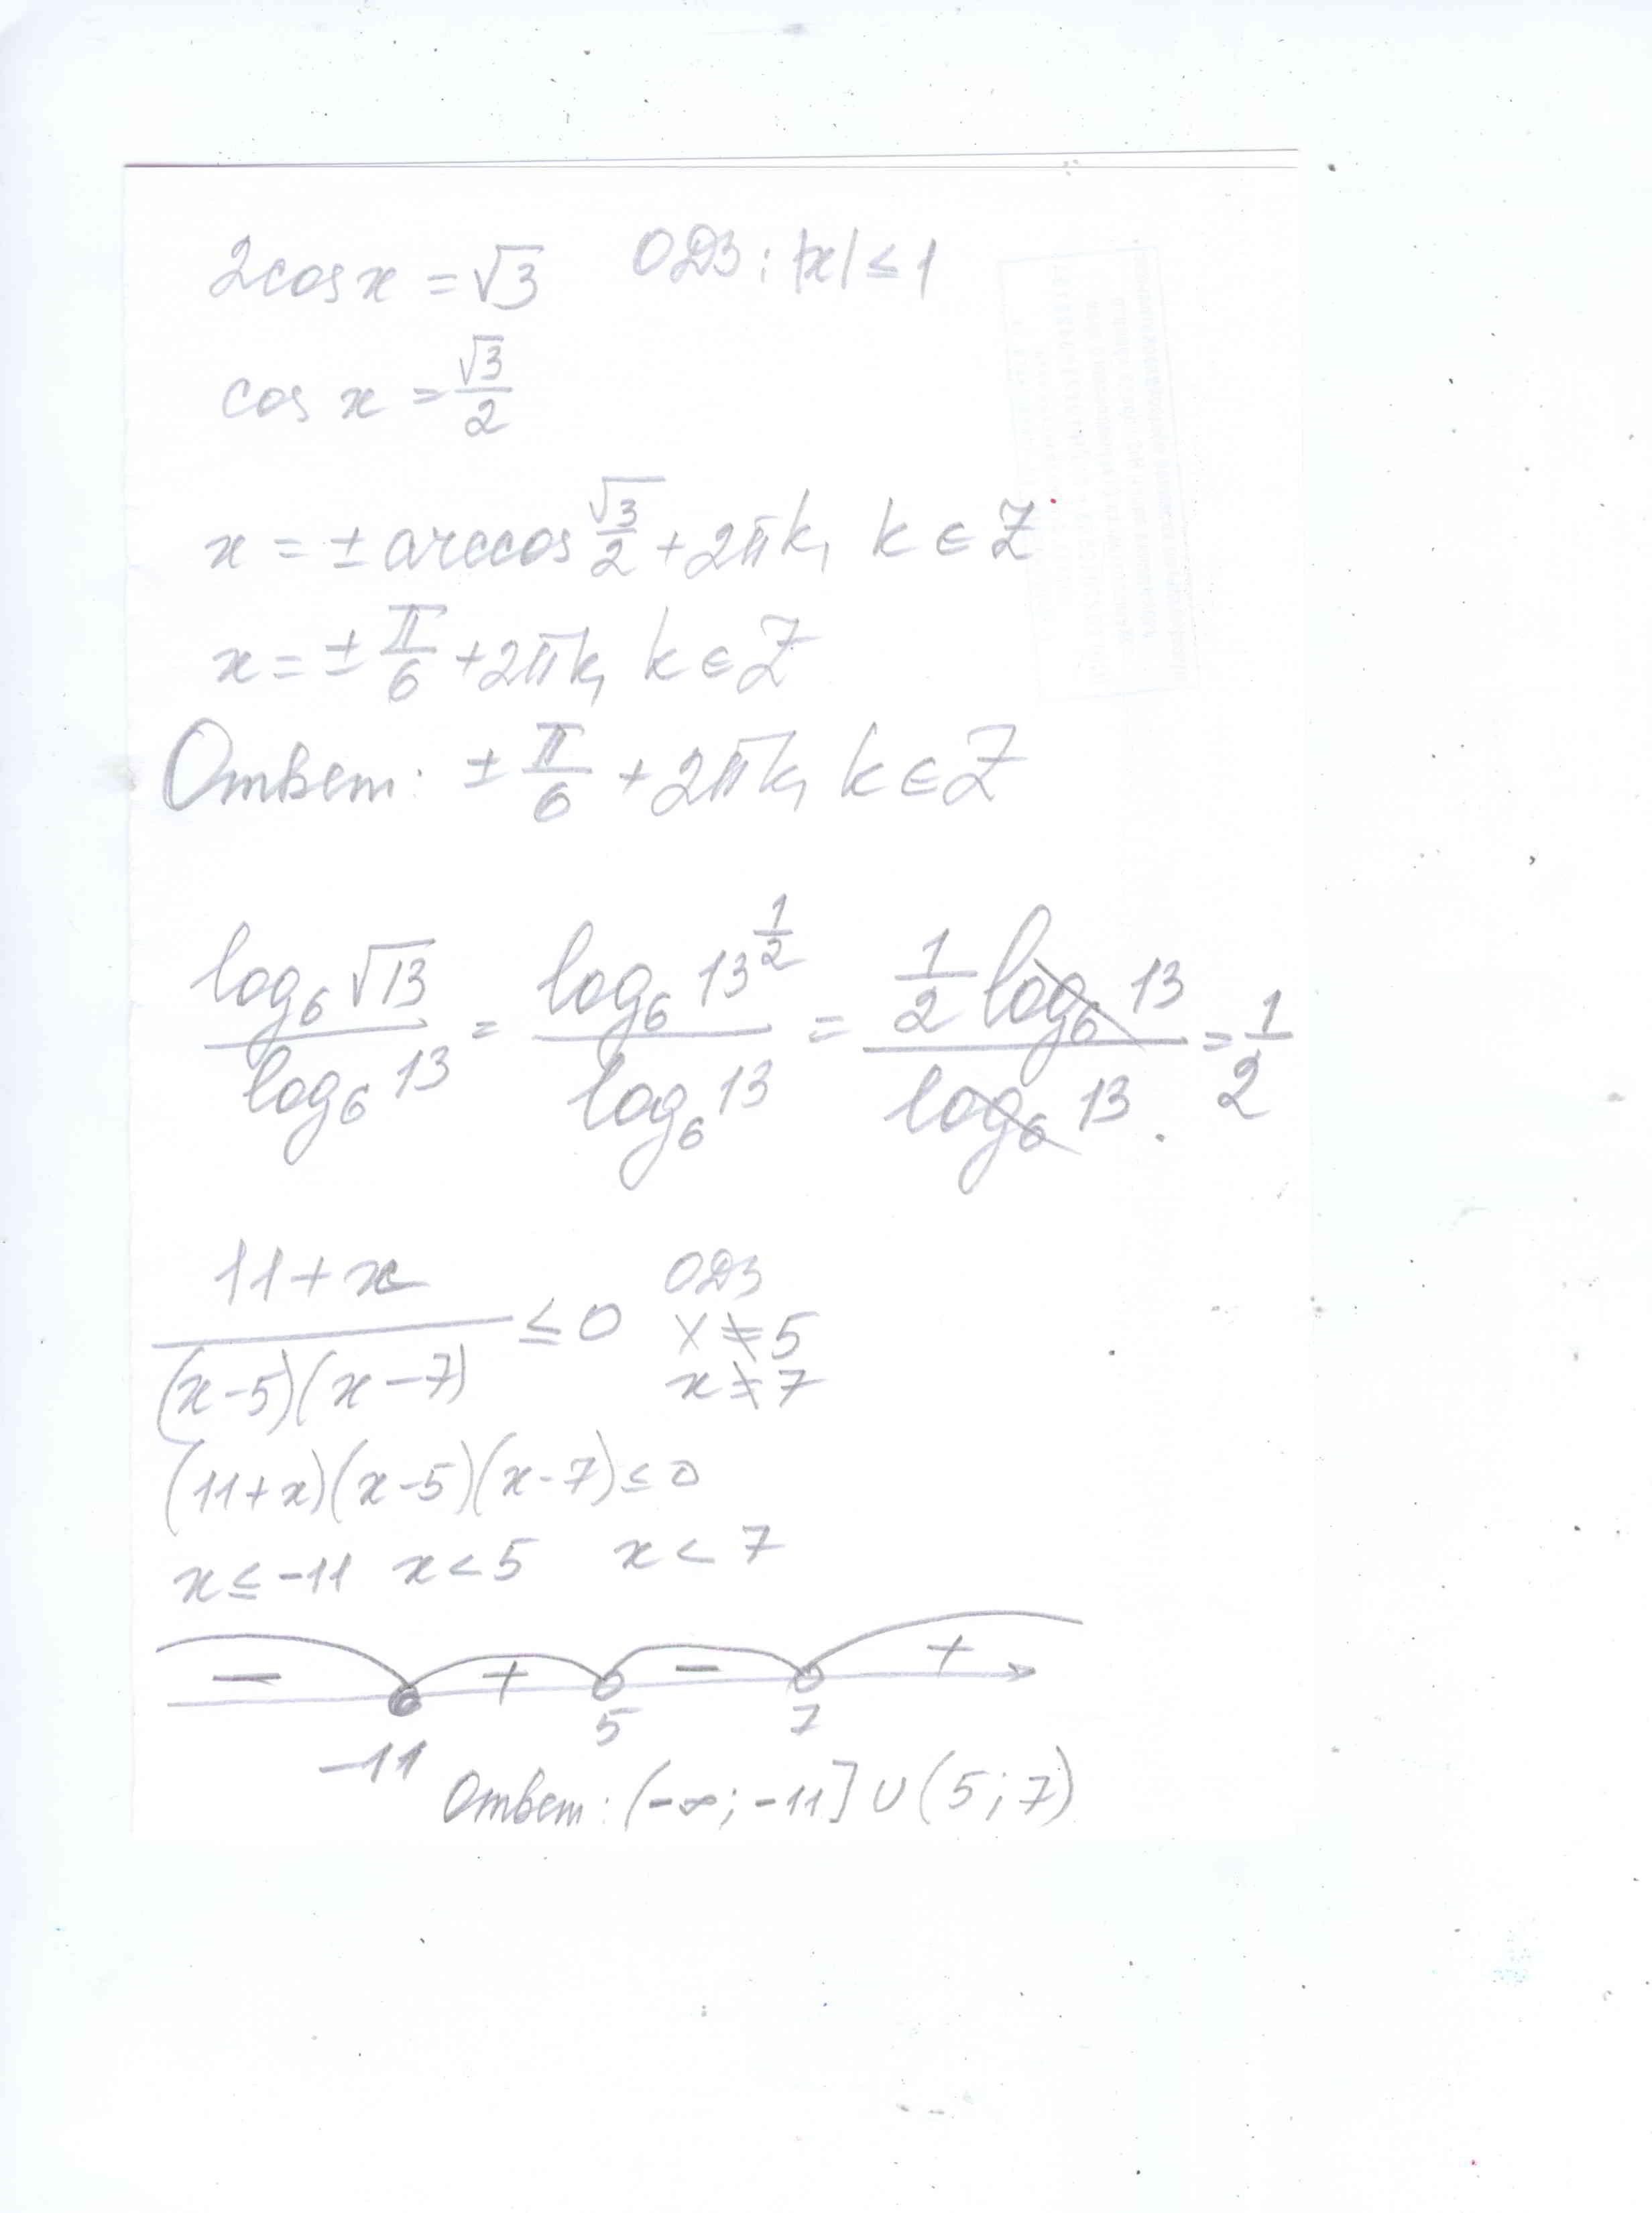 2cos x = √3 ОДЗ: |x| ≤ 1
cos x = √3/2
x = ± arccos √3/2 + 2πk, k ∈ Z
x = ± π/6 + 2πk, k ∈ Z
Ответ: ± π/6 + 2πk, k ∈ Z
log₆ √13 / log₆ 13 = log₆ 13^(1/2) / log₆ 13 = 1/2 log₆ 13 / log₆ 13 = 1/2
(11 + x) / ((x-5)(x-7)) ≤ 0 ОДЗ
x ≠ 5
x ≠ 7
(11+x)(x-5)(x-7) ≤ 0
x ≤ -11 x < 5 x < 7
− + − +
-11 5 7
Ответ: (-∞; -11] ∪ (5; 7)